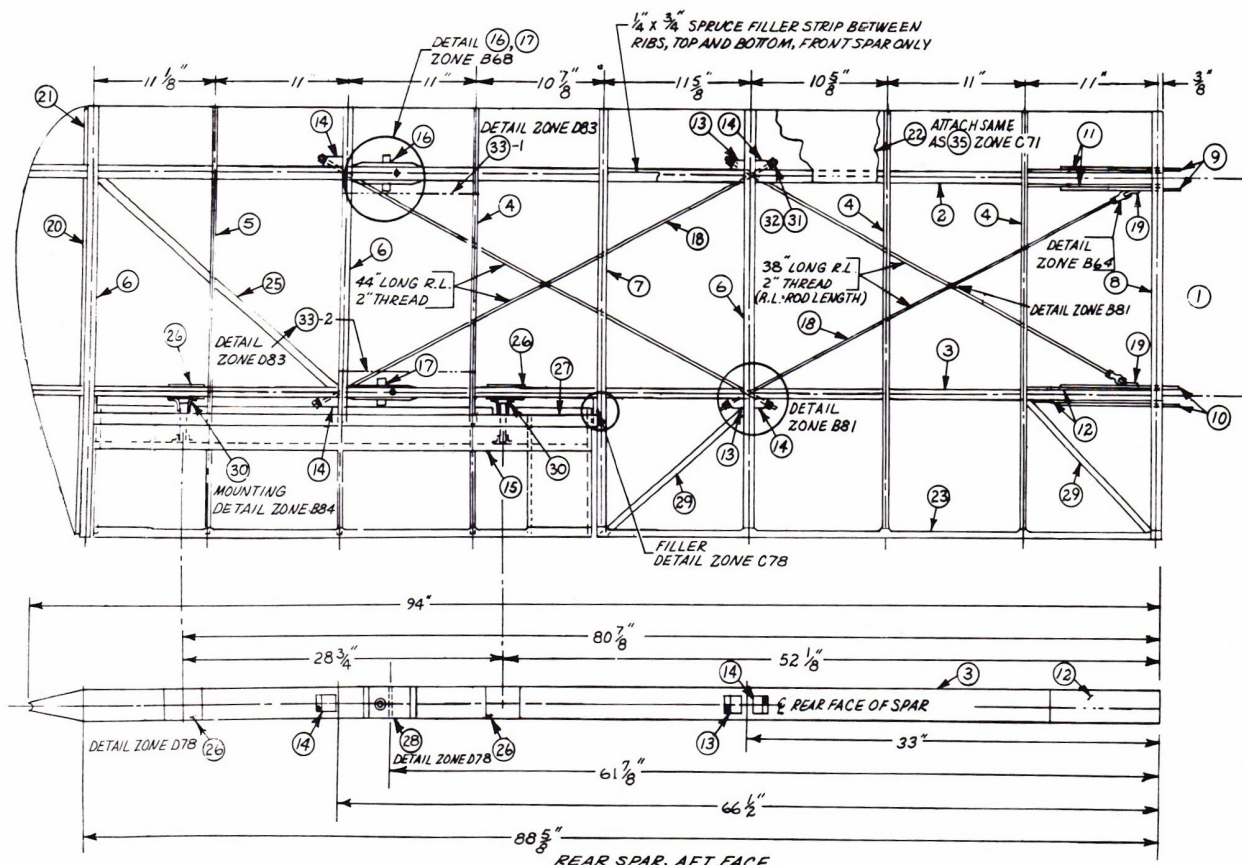 1/4" X 3/4" SPRUCE FILLER STRIP BETWEEN
RIBS, TOP AND BOTTOM, FRONT SPAR ONLY
DETAIL 16, 17
ZONE B68
11 1/8" 11 11" 10 7/8" 11 5/8" 10 5/8" 11" 11" 3/8"
21
14
16
DETAIL ZONE D83
33-1
13
14
22
ATTACH SAME
AS 35 ZONE C71
11
9
20
5
4
18
32
31
4
2
4
19
DETAIL
ZONE B64
6
6
44" LONG R.L.
2" THREAD
7
6
38" LONG R.L.
2" THREAD
(R.L. = ROD LENGTH)
8
1
25
DETAIL ZONE B81
33-2
DETAIL
ZONE D83
18
26
17
26
27
3
19
10
DETAIL
ZONE B81
12
30
14
15
30
13
14
29
23
29
MOUNTING
DETAIL ZONE B84
FILLER
DETAIL ZONE C78
94"
80 7/8"
28 3/4"
52 1/8"
3
12
14
℄ REAR FACE OF SPAR
DETAIL ZONE D78
26
14
28
DETAIL ZONE D78
26
13
33"
61 7/8"
66 1/2"
88 5/8"
REAR SPAR, AFT FACE